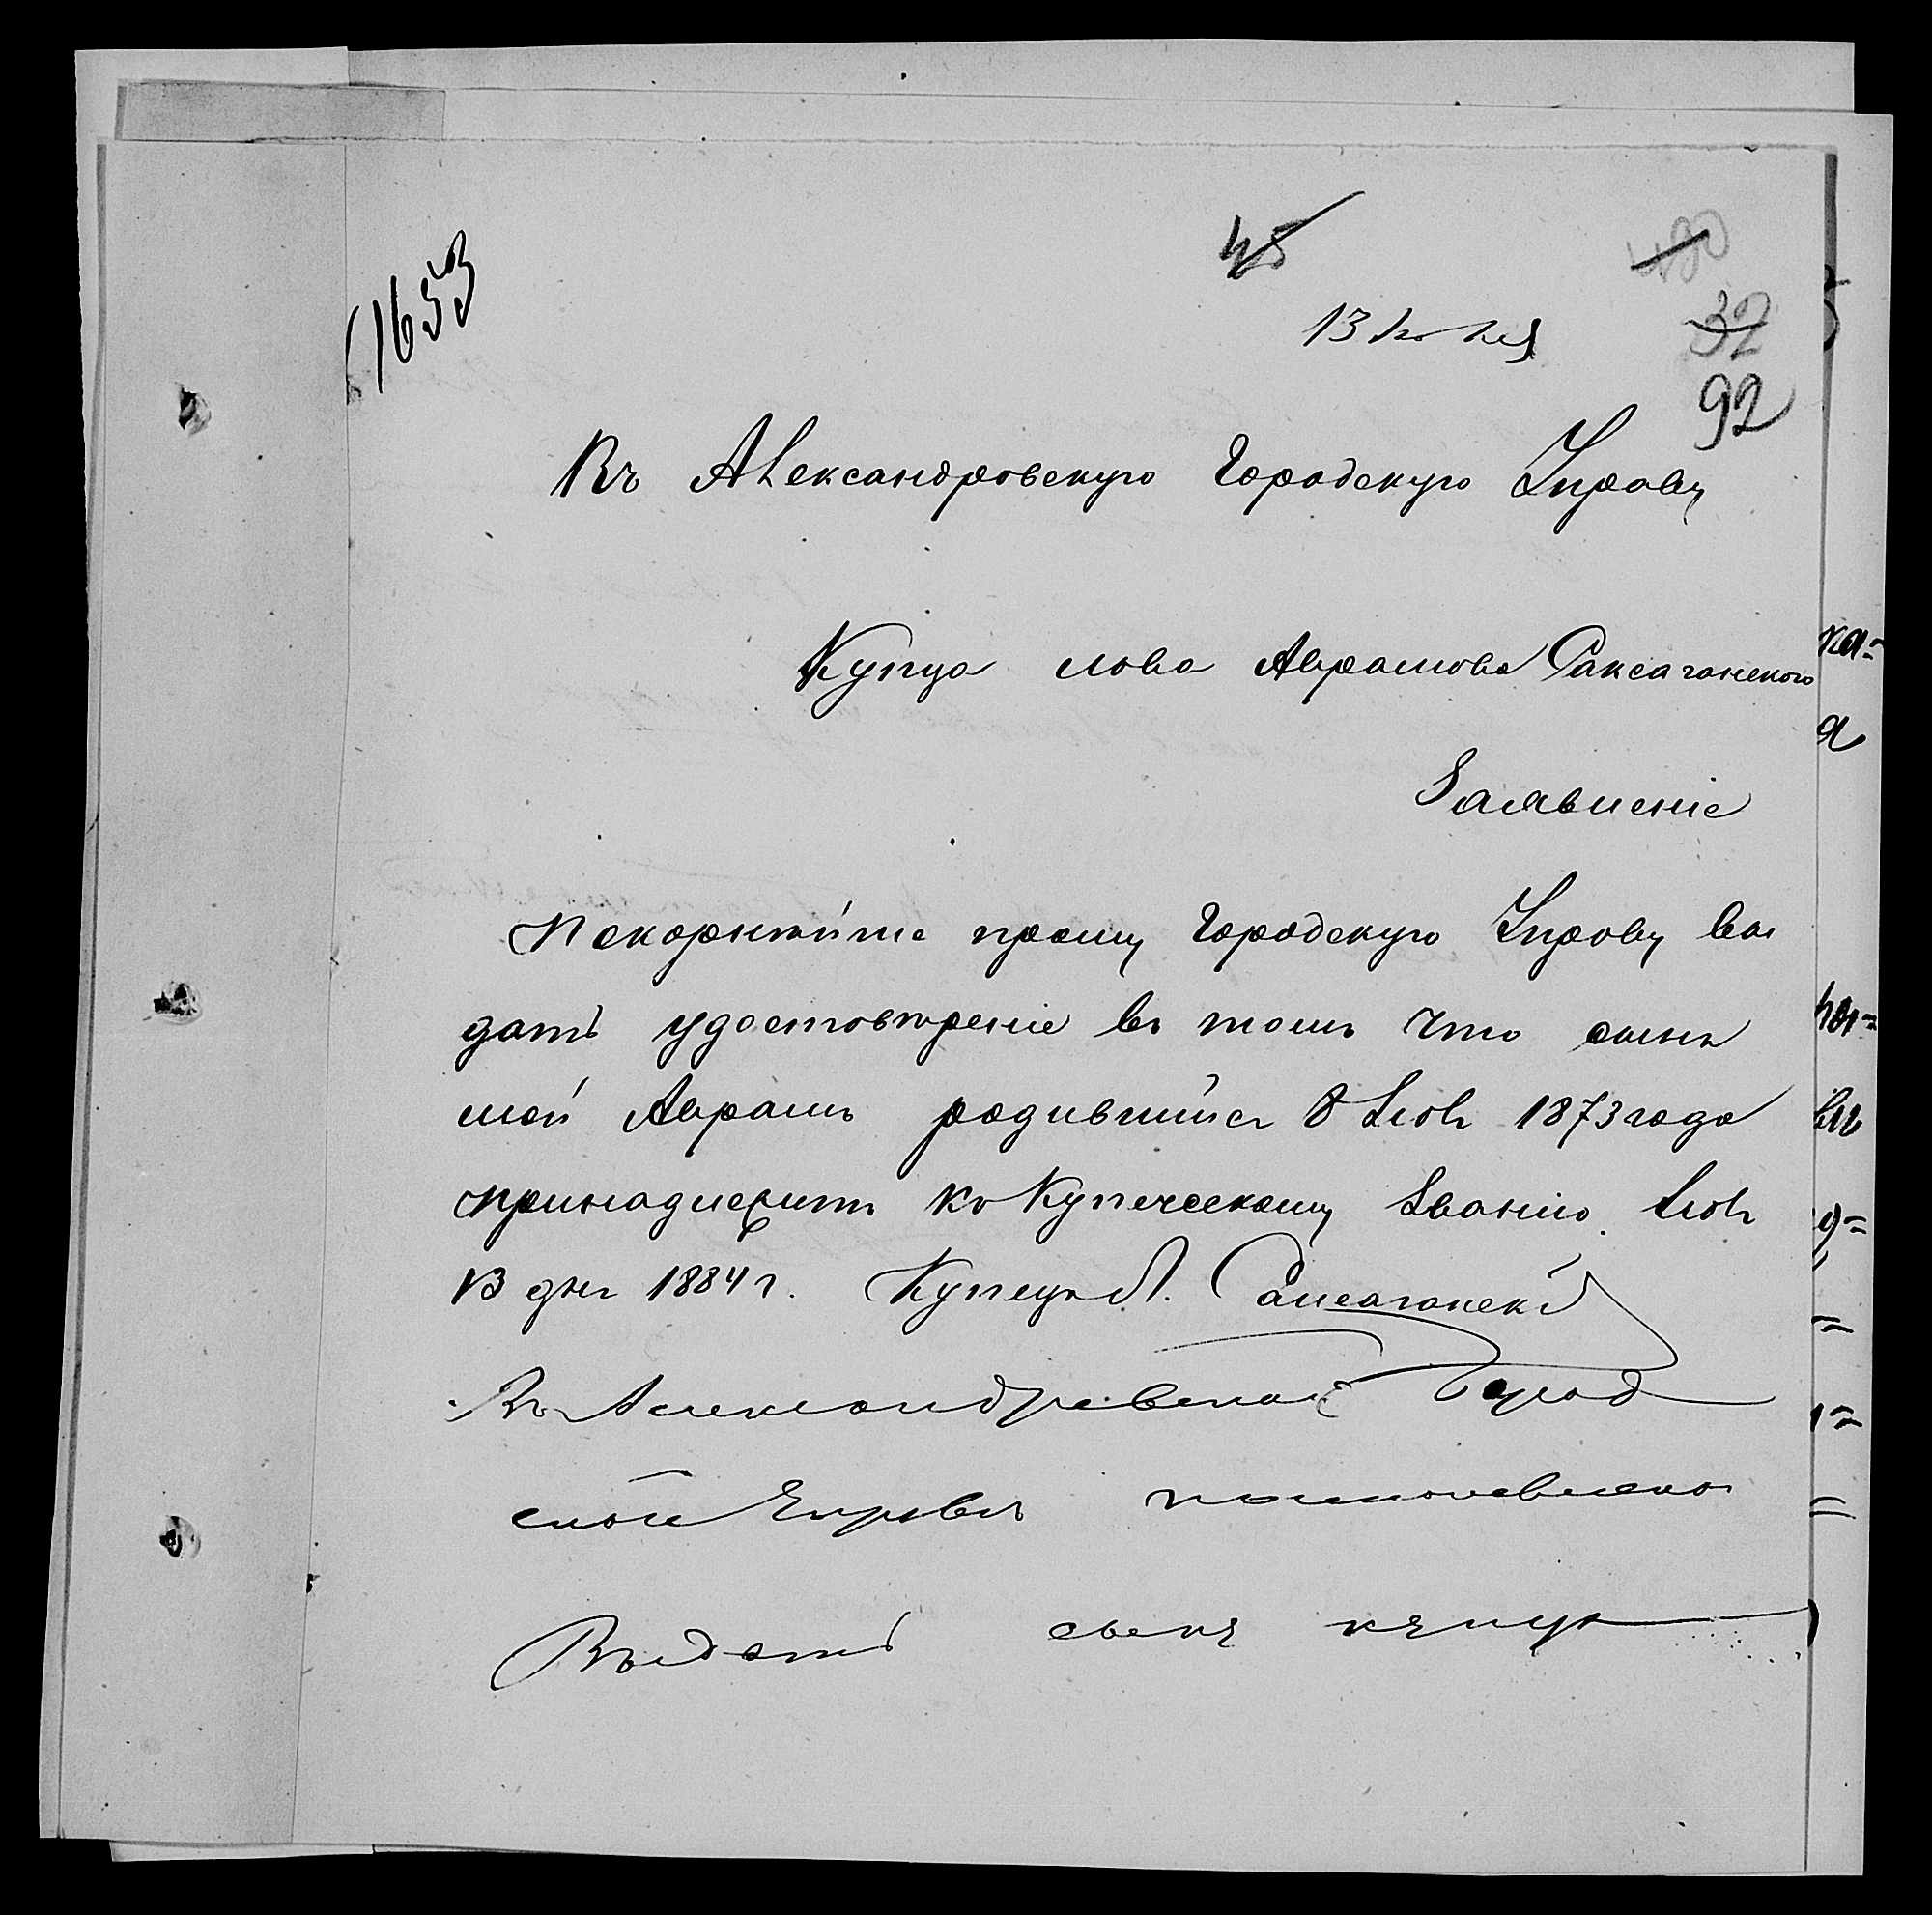 1653
45
480
13 Июня
32
92
Въ Александровскую Городскую Управу
Купца Лова Аврамова Саксаганского
Заявление
Покорнѣйше прошу Городскую Управу вы
дать удостовѣрение въ томъ что сынъ
мой Аврамъ родившийся 8 1873 года
принадлежитъ къ Купеческому Званию.
13 дня 1884 г. Купецъ Л. Саксаганский
Въ Александровской Город
ской Управѣ постановлено
Выдать сыну купца